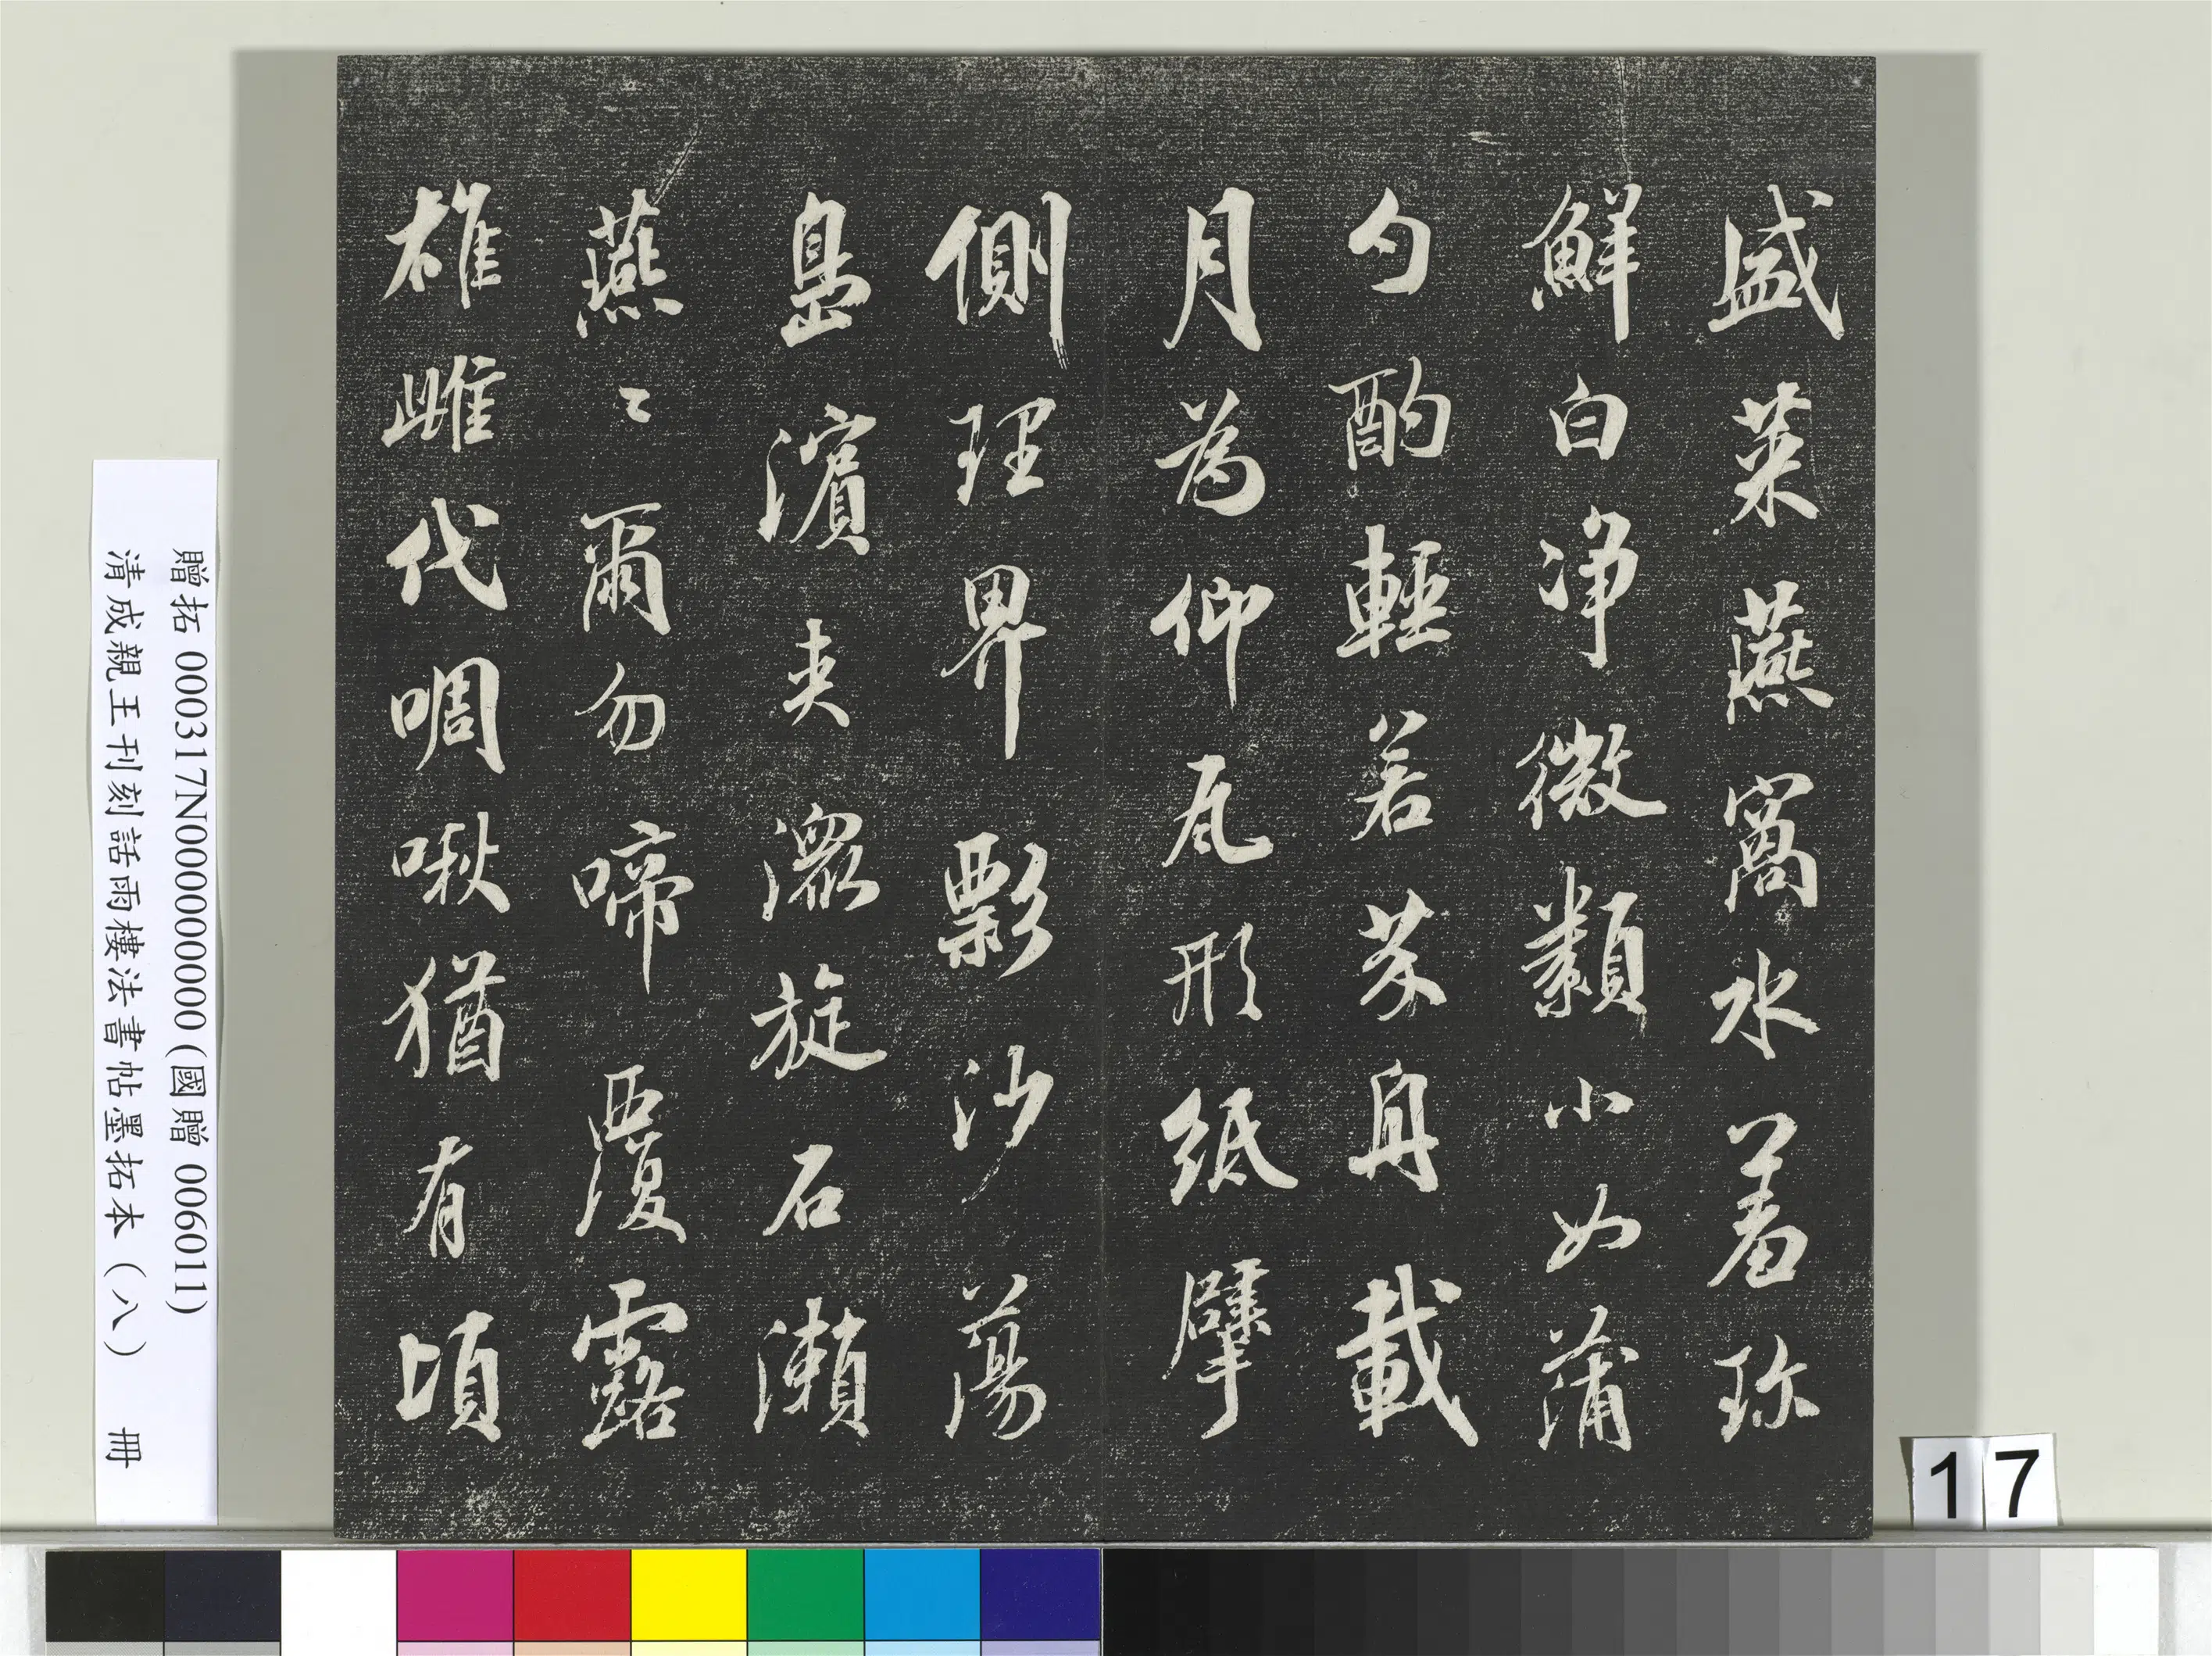 盛菜燕窩水羞珎
鮮白净微纇小如蒲
勺酌輕若芥舟載
月為仰瓦形紙擘
側理界影沙蕩
島濱夾澱旋石瀨
燕〻爾勿啼覆露
雄雌代啁啾猶有頃
贈拓 000317N000000000(國贈 006011)
清成親王刊刻話雨樓法書帖墨拓本(八) 冊
17